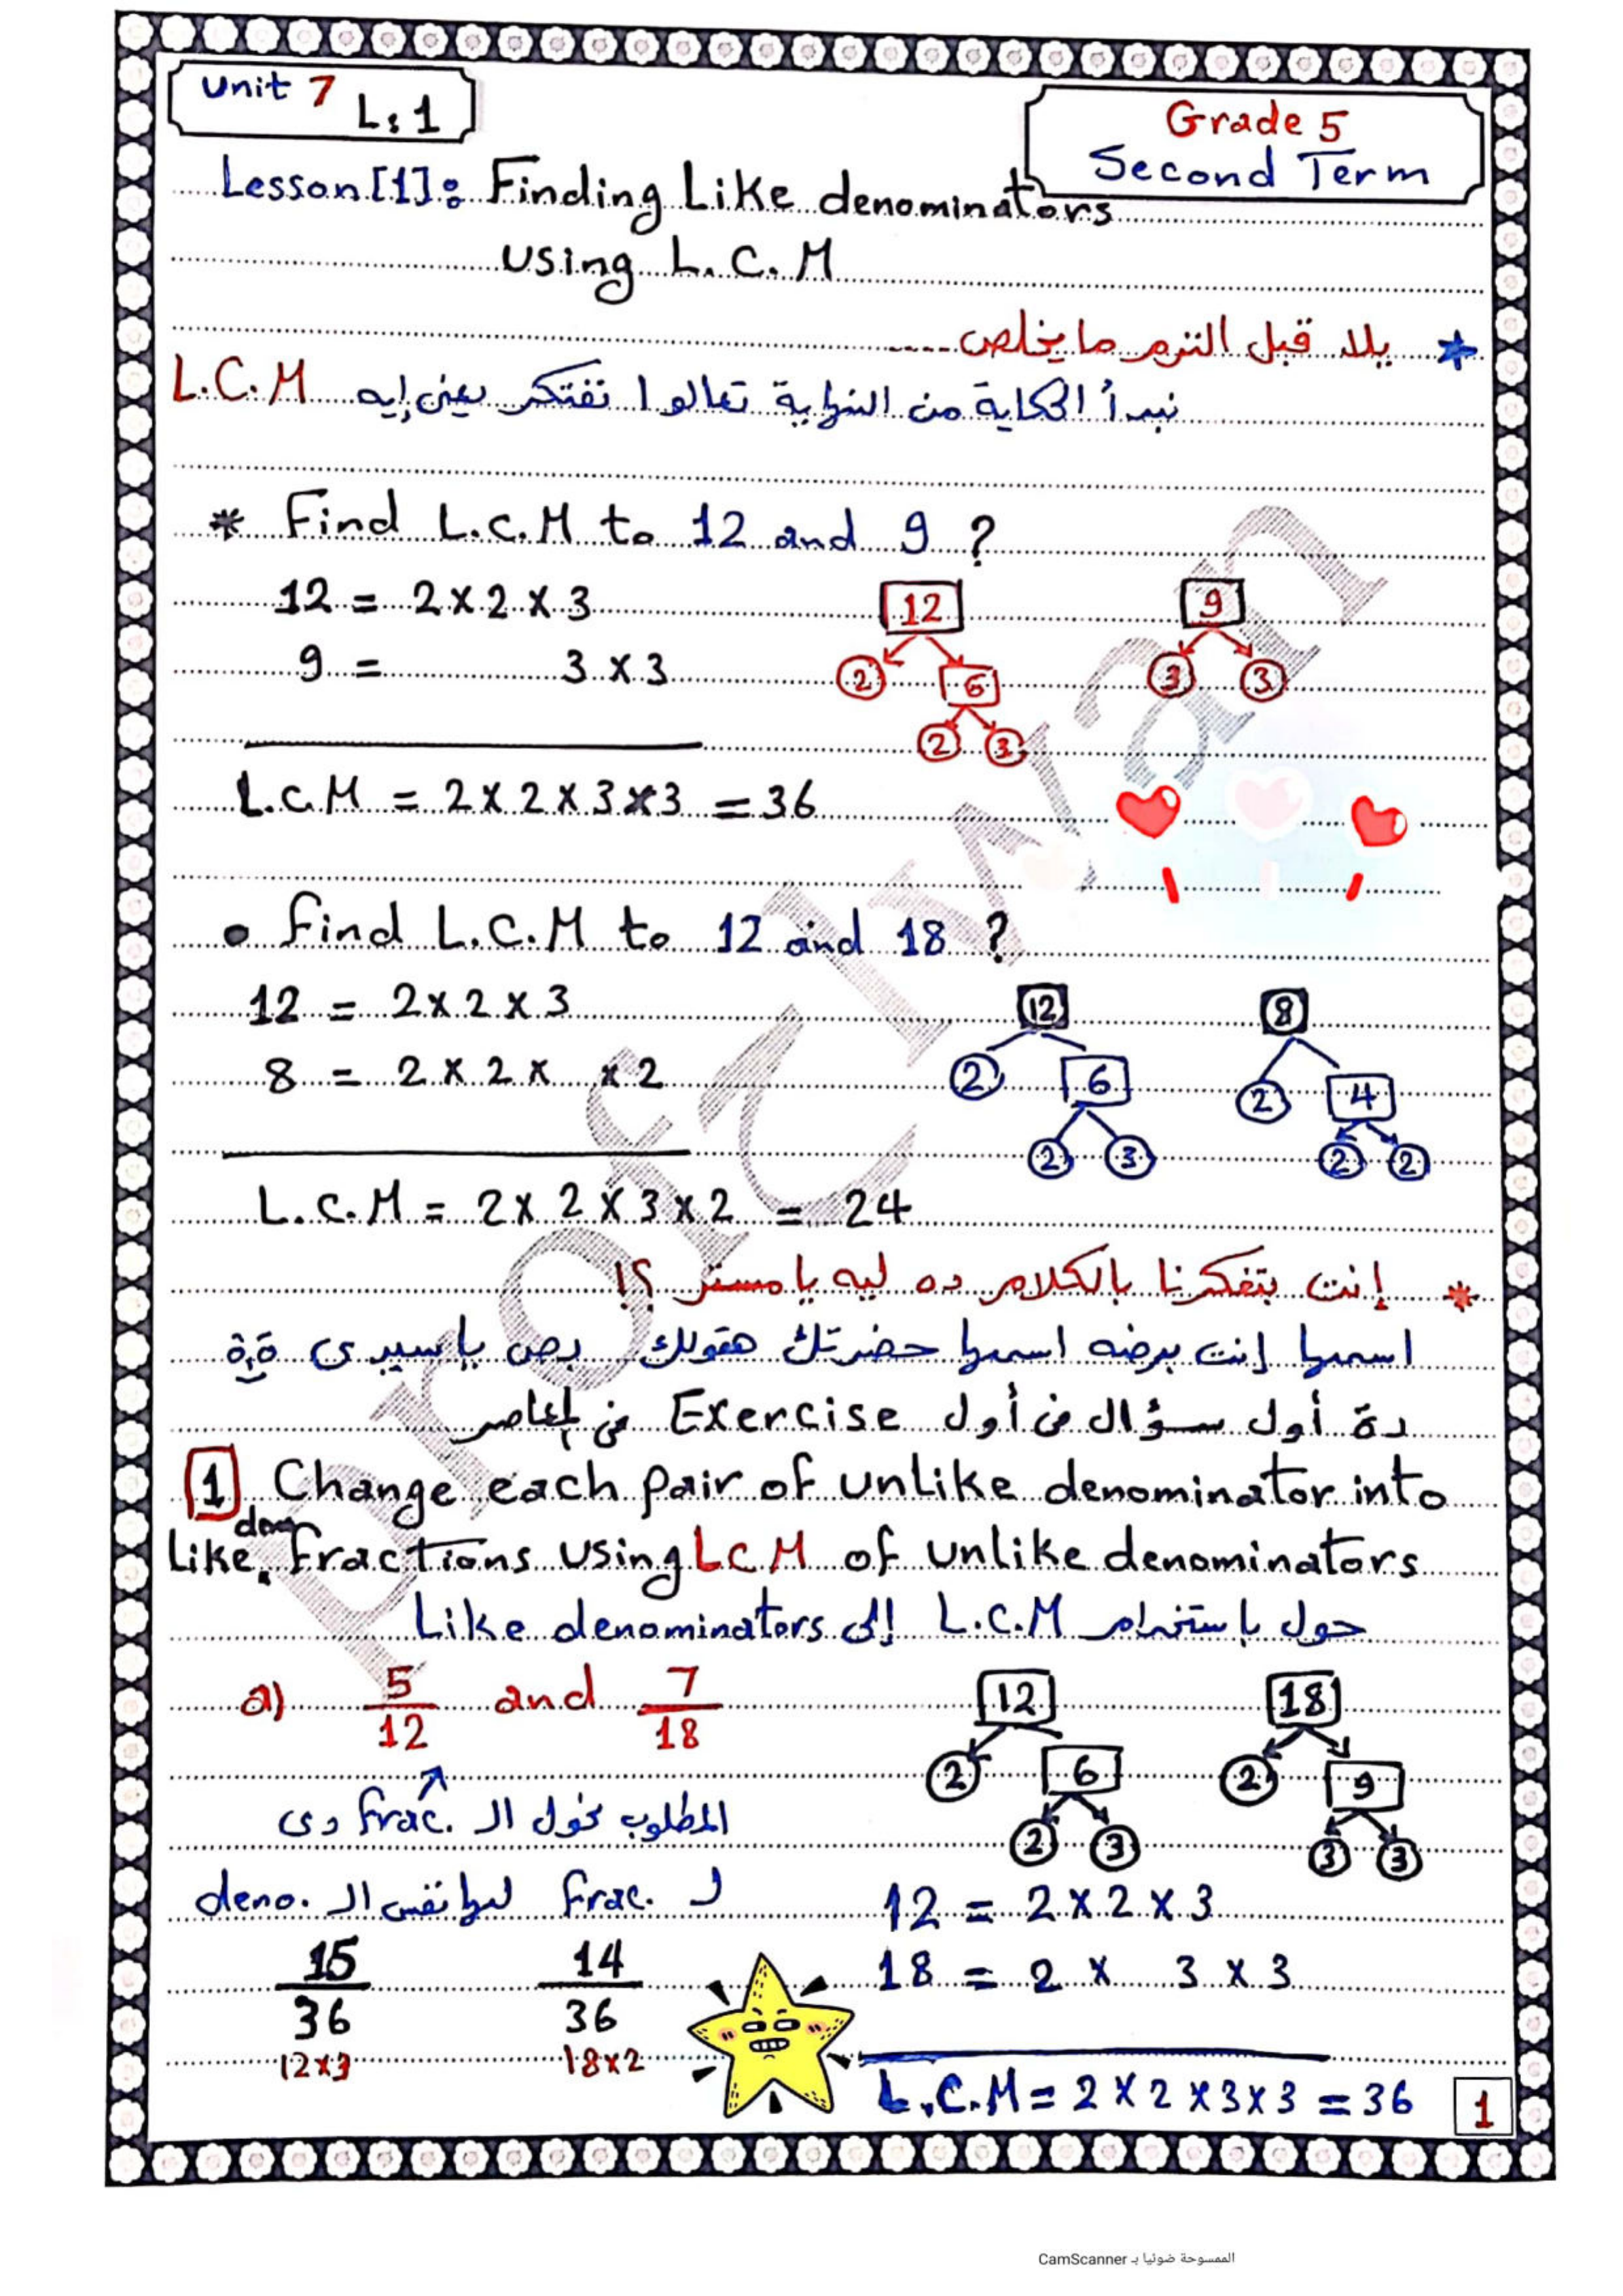 Unit 7 L:1
Grade 5
Second Term
Lesson [1]: Finding Like denominators
using L.C.M
* يلا قبل الترم ما يخلص ....
نبدأ الحكاية من النهاية تعالوا نفتكر يعنى إيه L.C.M
* Find L.C.M to 12 and 9 ?
12 = 2 x 2 x 3
9 = 3 x 3
12
9
2 6
3 3
2 3
L.C.M = 2 x 2 x 3 x 3 = 36
• Find L.C.M to 12 and 18 ?
12 = 2 x 2 x 3
8 = 2 x 2 x x 2
12
8
2 6
2 4
2 3
2 2
L.C.M = 2 x 2 x 3 x 2 = 24
* إنت بتفكرنا بالكلام ده ليه يا مستر ؟!
اسمها إنت برضه اسمها حضرتك هقولك بص يا سيدى
دة أول سؤال فى أول Exercise فى المعاصر
1 Change each pair of unlike denominator into
Like fractions using LCM of unlike denominators
حول باستخدام L.C.M إلى Like denominators
a) 5/12 and 7/18
12
18
2 6
2 9
2 3
3 3
المطلوب نحول الـ frac. دى
لـ frac. لها نفس الـ deno.
12 = 2 x 2 x 3
18 = 2 x 3 x 3
15/36 14/36
12x3 18x2
L.C.M = 2 x 2 x 3 x 3 = 36
1
Prof Iman
الممسوحة ضوئيا بـ CamScanner